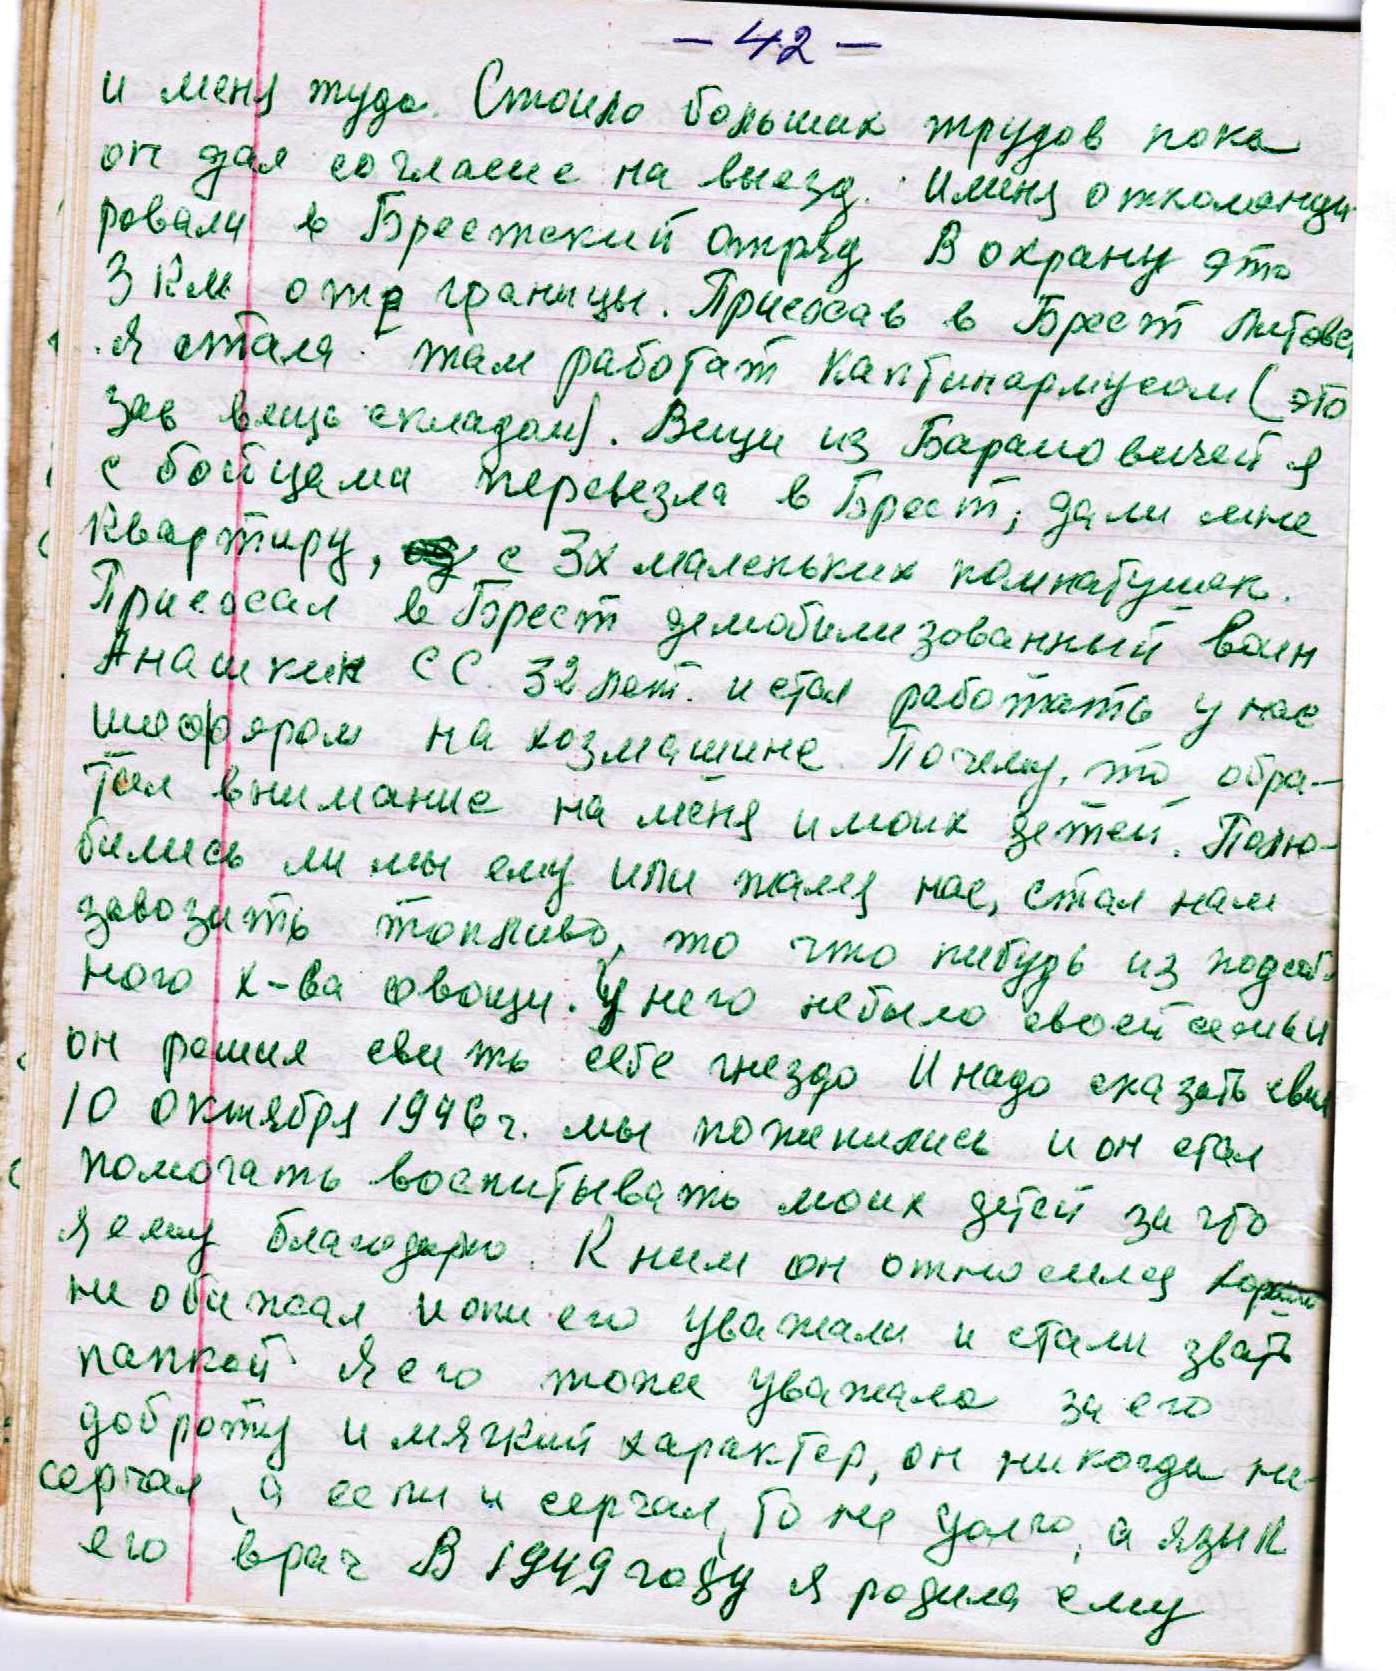 — 42 —
и меня туда. Стоило больших трудов пока
он дал согласие на выезд. и меня откоманди
ровали в Брестский отряд В охрану это
3 км от границы. Приехав в Брест Литовск
я стала там работат каптинармусом (это
зав вещь складом). Вещи из Барановичей я
с бойцами перевезла в Брест, дали мне
квартиру, с 3х маленьких комнатушек.
Приехал в Брест демобилизованный воин
Анашкин СС. 32 лет. и стал работать у нас
шофором на хозмашине. Почему, то обра-
тил внимание на меня и моих детей. Полю-
бились ли мы ему или жалея нас, стал нам
завозить топливо, то что нибудь из подсоб
ного х-ва овощи. У него небыло своей семьи
он решил свить себе гнездо И надо сказать свил
10 октября 1946 г. мы поженились и он стал
помогать воспитывать моих детей за что
я ему благодарно. К ним он относился хорошо
не обижал и они его уважали и стали звать
папкой Я его тоже уважала за его
доброту и мягкий характер, он никогда не
серчал, а если и серчал, то не долго, а язык
его враг В 1949 году я родила ему